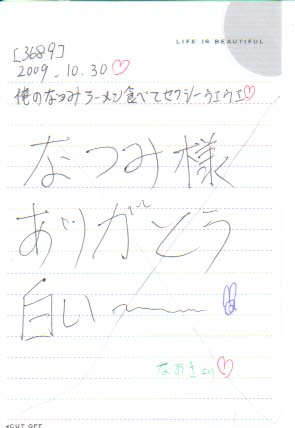 LIFE IS BEAUTIFUL
[3689]
2009.10.30♡
俺のなつみラーメン食べてセクシーウエウエ♡
なつみ様
ありがとう
白い〜
なおきより♡
◀CUT OFF